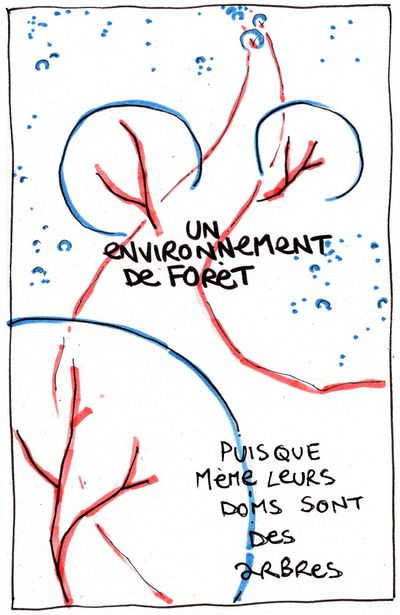 UN
ENVIRONNEMENT
DE FORÈT
PUISQUE
MÈME LEURS
DOMS SONT
DES
ARBRES